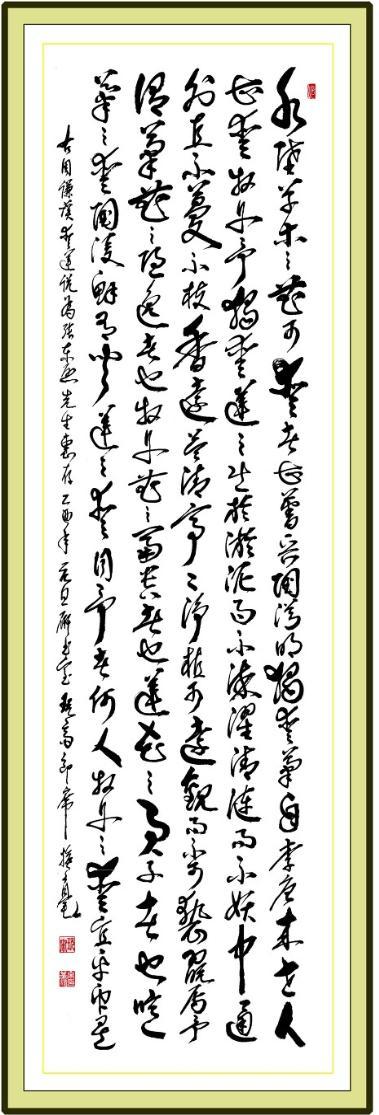 水陸草木之花可愛者甚蕃晉陶淵明獨愛菊自李唐來世人
甚愛牡丹予獨愛蓮之出於淤泥而不染濯清漣而不妖中通
外直不蔓不枝香遠益清亭亭淨植可遠觀而不可褻翫焉予
謂菊花之隱逸者也牡丹花之富貴者也蓮花之君子者也噫
菊之愛陶後鮮有聞蓮之愛同予者何人牡丹之愛宜乎眾矣
周濂溪愛蓮說為張東先生惠存乙酉年元旦